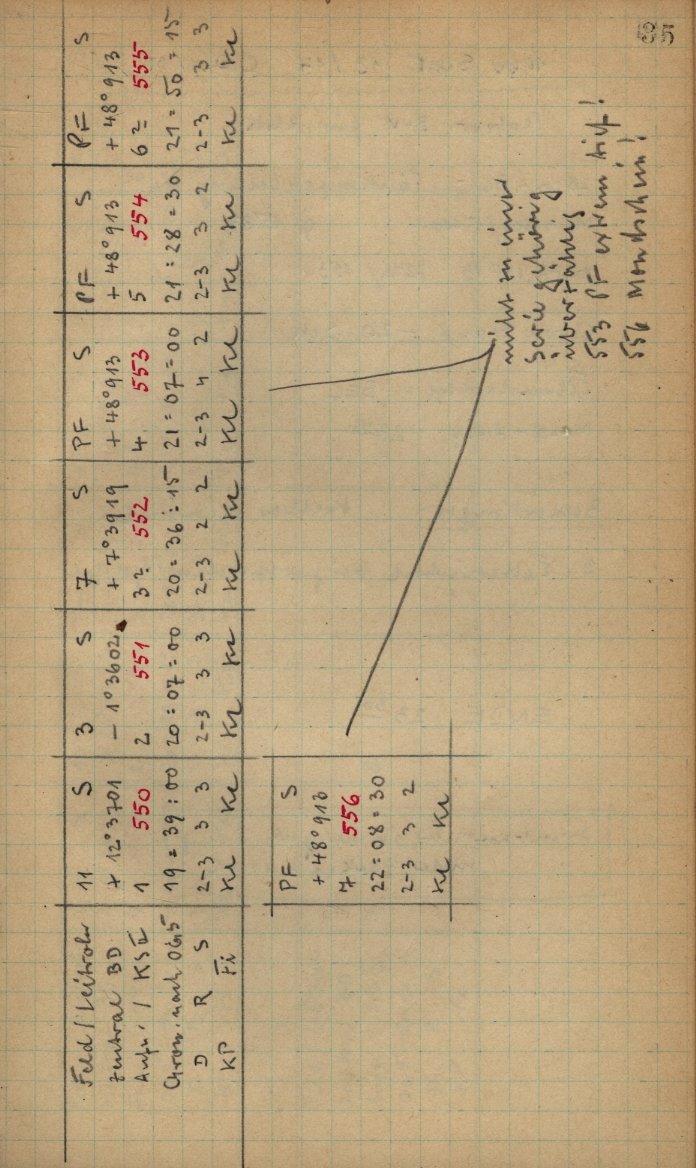 50
51
Feld / Leitrohr 11 S 3 S 7 S PF S PF S PF S
Zentral BD + 12°3701 − 1°3602 + 7°3919 + 48°913 + 48°913 + 48°913
Aufn. / KSII 1 550 2 551 3 552 4 553 5 554 6 555
Chron. nach 19:39:00 20:07:00 20:36:15 21:07:00 21:28:30 21:50:15
D R S 2-3 3 3 2-3 3 3 2-3 2 2 2-3 4 2 2-3 3 2 2-3 3 3
KP Fi Kr Kr Kr Kr Kr Kr Kr Kr Kr Kr Kr Kr
PF S
+ 48°913
7 556
22:08:30
2-3 3 2
Kr Kr
nicht zu einer
Serie gehörig
überzählig
553 PF extrem tief!
556 Mondschein!